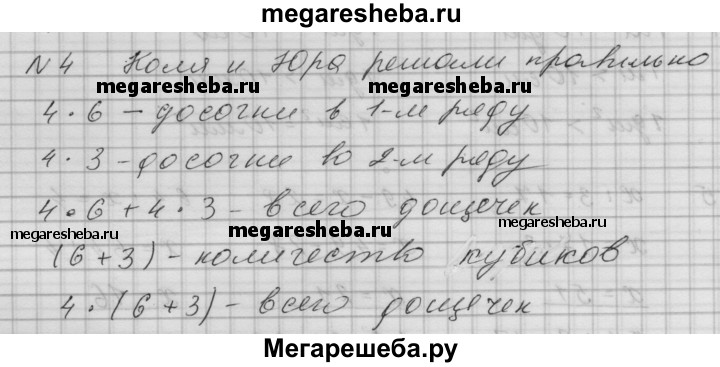 megaresheba.ru
N 4 Коля и Юра решали правильно
megaresheba.ru megaresheba.ru
4 · 6 – досочки в 1-м ряду
4 · 3 – досочки во 2-м ряду
4 · 6 + 4 · 3 – всего дощечек
megaresheba.ru megaresheba.ru megaresheba.ru
(6 + 3) – количество кубиков
4 · (6 + 3) – всего дощечек
Мегарешеба.ру